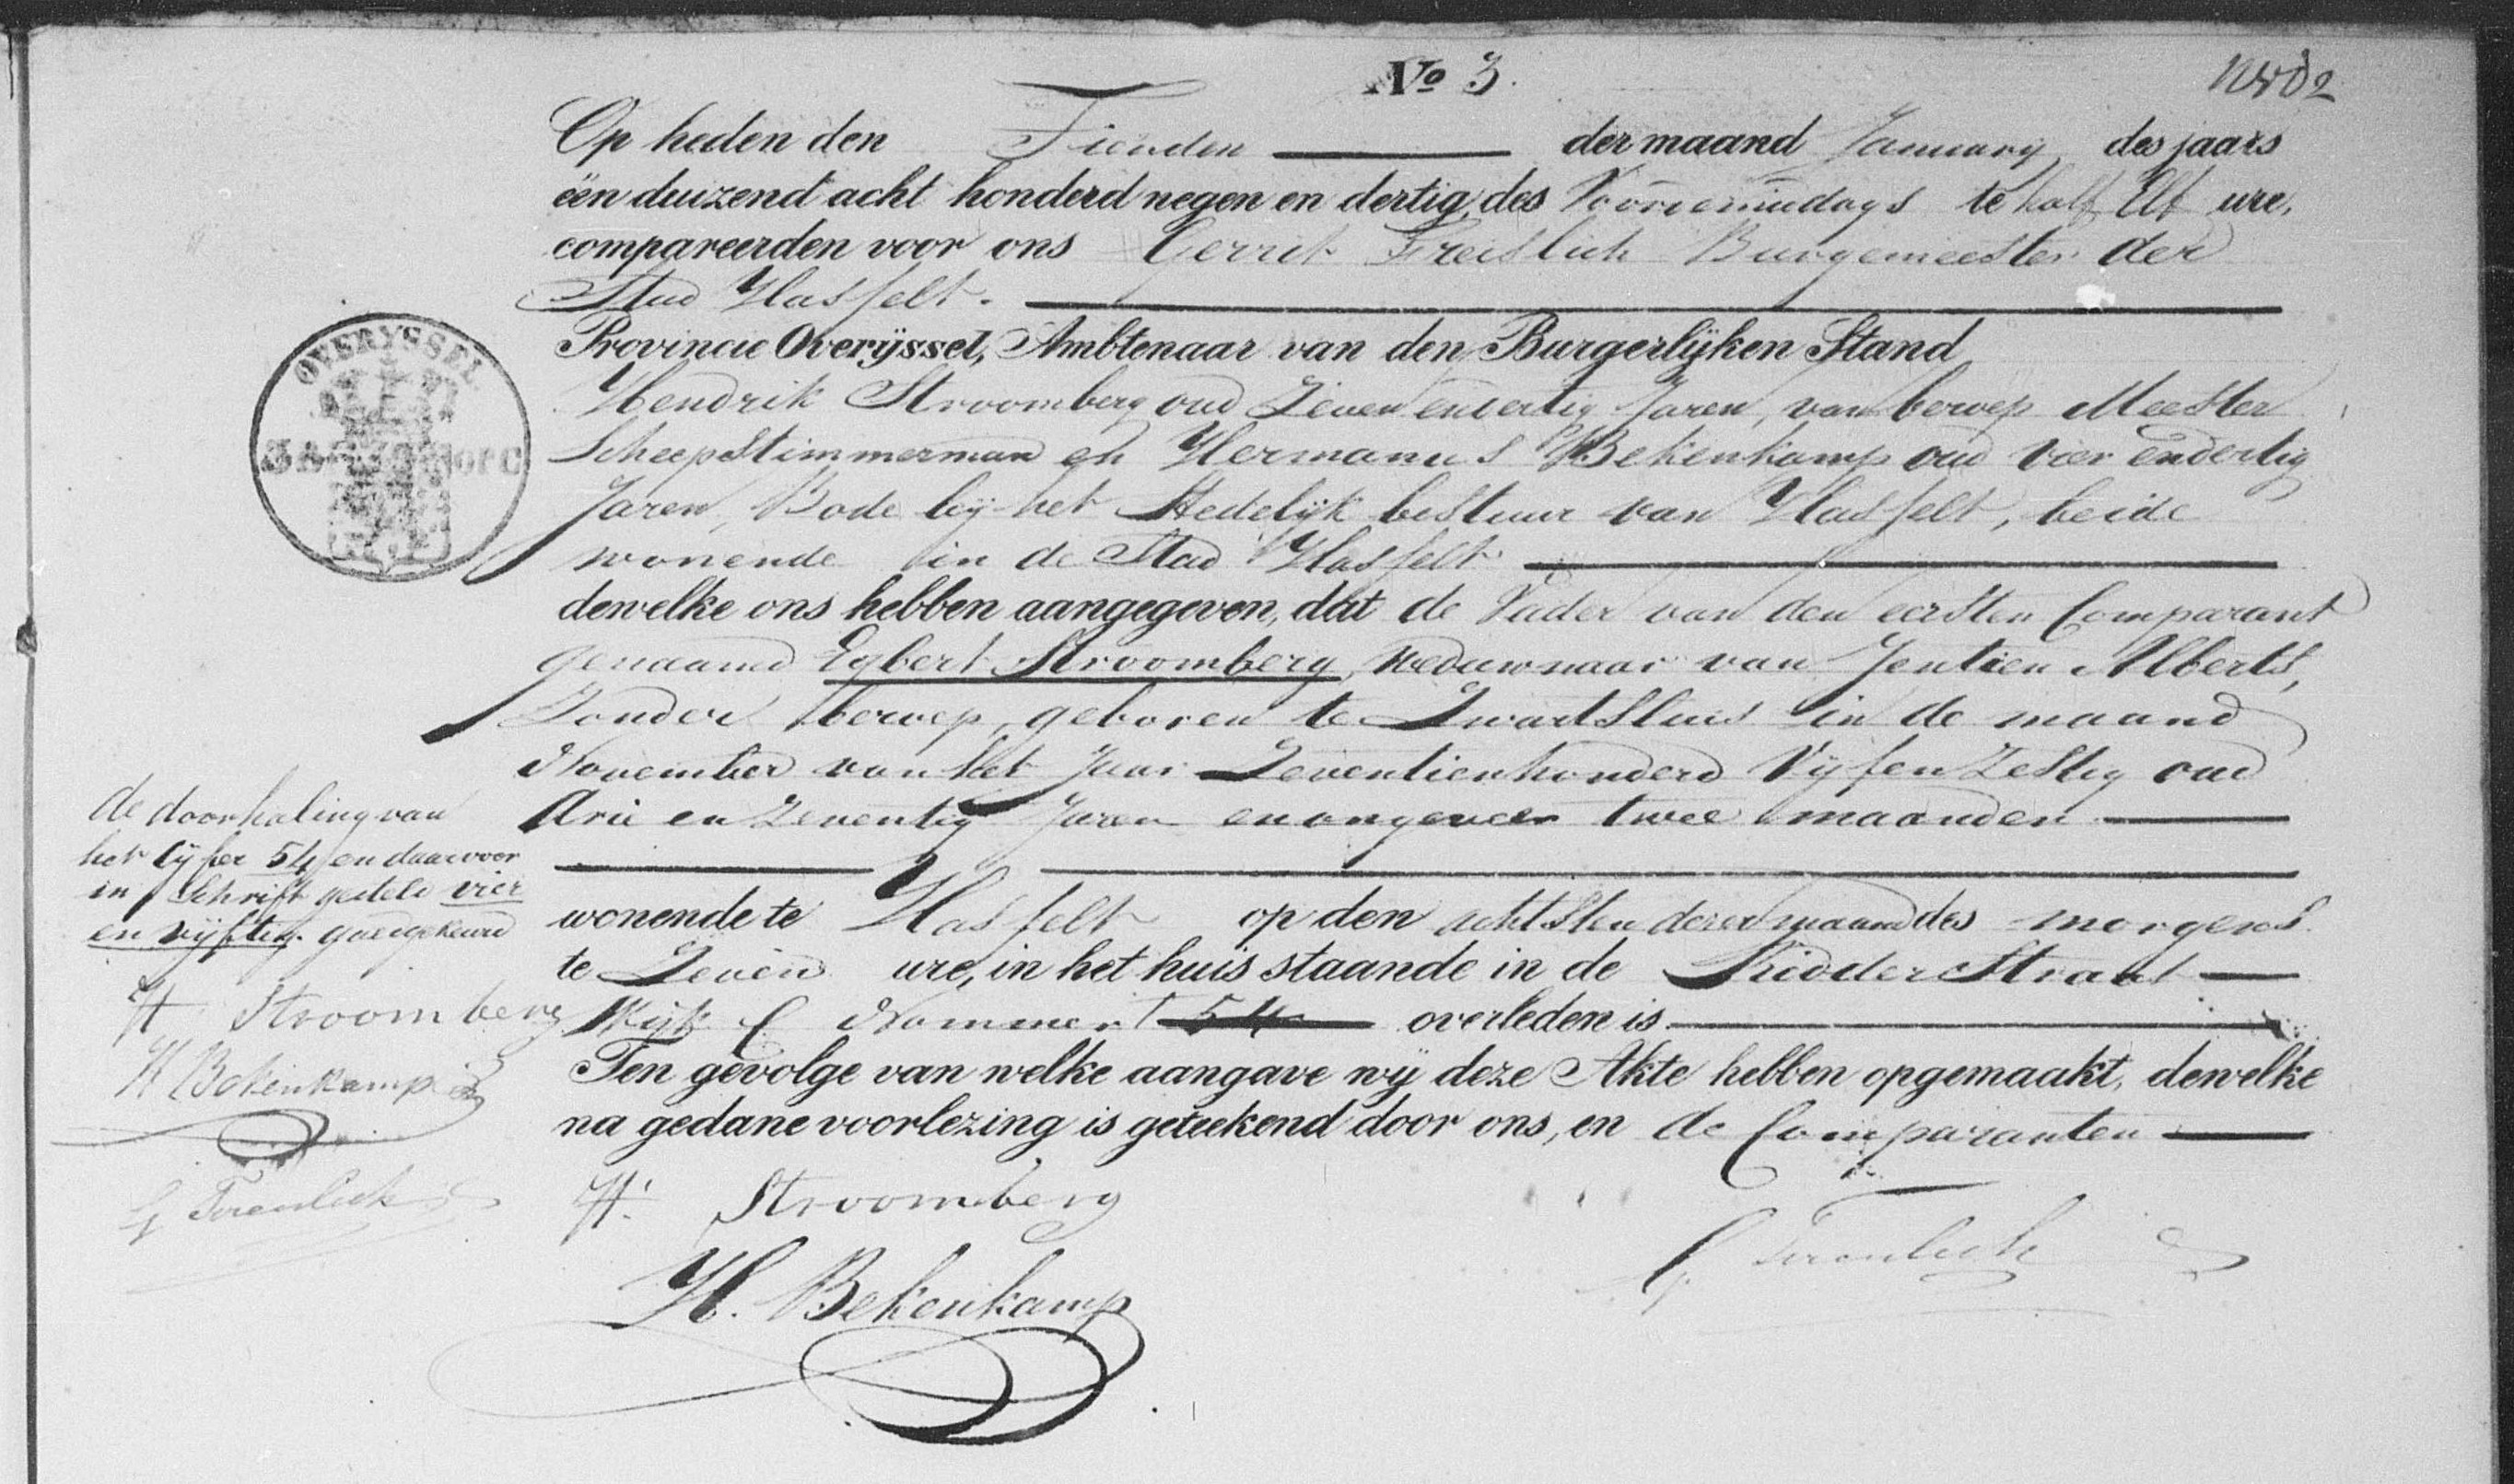 No 3.
Op heden den Tienden der maand January des jaars
één duizend acht honderd negen en dertig, des Voormiddags te half Elf ure,
compareerden voor ons Gerrit Freislich Burgemeester der
Stad Hasselt.
OVERYSSEL
Provincie Overijssel, Ambtenaar van den Burgerlijken Stand
Hendrik Stroomberg oud Zeven endertig Jaren, van beroep Meester
Scheepstimmerman en Hermanus Bekenkamp oud vier endertig
Jaren, Bode bij het Stedelijk bestuur van Hasselt, beide
wonende in de Stad Hasselt
dewelke ons hebben aangegeven, dat de Vader van den eersten Comparant
genaamd Egbert Stroomberg, Weduwnaar van Jentien Alberts,
Zonder beroep, geboren te Zwartsluis in de maand
November van het Jaar Zeventienhonderd Vijfenzestig oud
drie en zeventig Jaren en ongeveer twee maanden
wonende te Hasselt op den achtsten dezer maand des morgens
te Zeven ure, in het huis staande in de Ridder Straat
Wijk C Nommer 54 overleden is
Ten gevolge van welke aangave wij deze Akte hebben opgemaakt, dewelke
na gedane voorlezing is geteekend door ons, en de Comparanten
H. Stroomberg
H. Bekenkamp
G Freislich
de doorhaling van
het Cyfer 54 en daarvoor
in Schrift gestelde vier
en vyftig goedgekeurd
H Stroomberg
H Bekenkamp
G Freislich